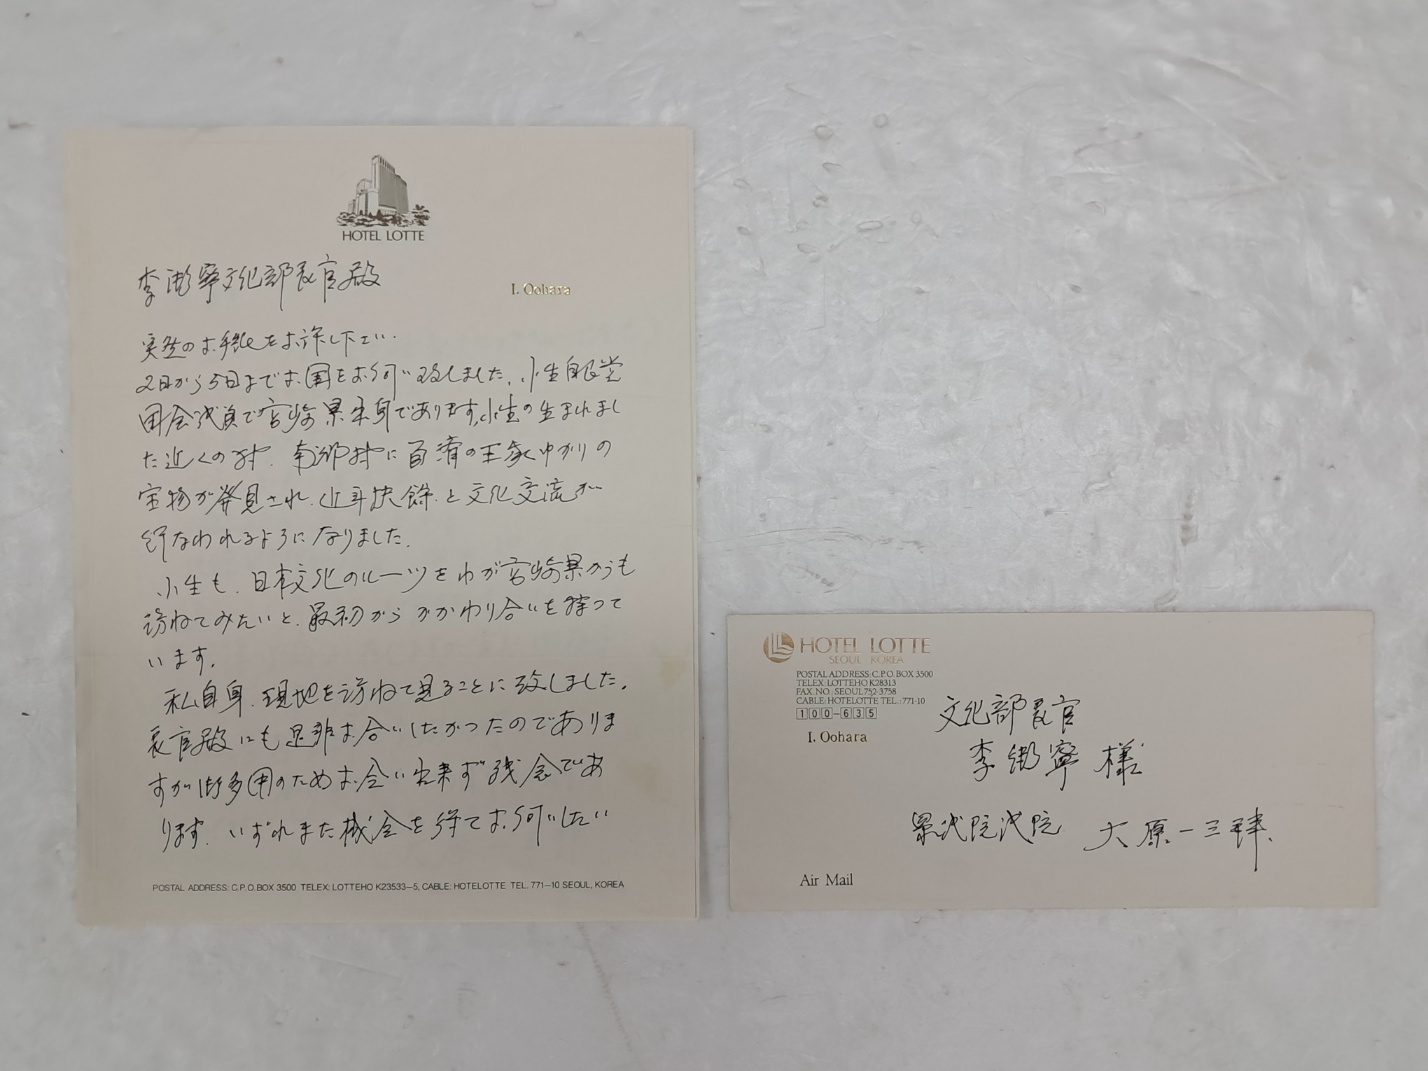 HOTEL LOTTE
李御寧文化部長官殿
I. Oohara
突然のお手紙をお許し下さい.
2日から5日までお国をお伺い致しました。小生自民党
国会議員で宮崎県出身であります。小生の生まれまし
た近くの村、南郷村に百済の王家ゆかりの
宝物が発見され、近年扶餘と文化交流が
行なわれるようになりました.
小生も、日本文化のルーツをわが宮崎県からも
訪ねてみたいと、最初からかかわり合いを持って
います.
私自身、現地を訪ねて見ることに致しました.
長官殿にも是非お会いしたかったのでありま
すが御多用のためお会い出来ず残念であ
ります. いずれまた機会を得てお伺いしたい
POSTAL ADDRESS: C.P.O.BOX 3500 TELEX: LOTTEHO K23533-5, CABLE: HOTELOTTE TEL. 771-10 SEOUL, KOREA
HOTEL LOTTE
SEOUL KOREA
POSTAL ADDRESS: C.P.O. BOX 3500
TELEX: LOTTEHO K28313
FAX. NO.: SEOUL 752-3758
CABLE: HOTELOTTE TEL.: 771-10
100-635
I. Oohara
文化部長官
李御寧 様
衆議院議院 大原一三拝
Air Mail